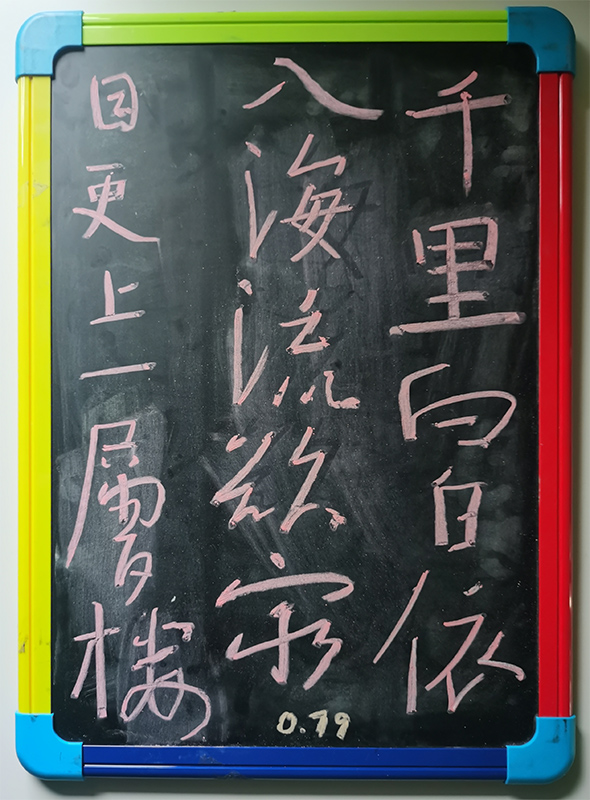 千里向日依
入海流欲穷
目更上一層樓
0.79